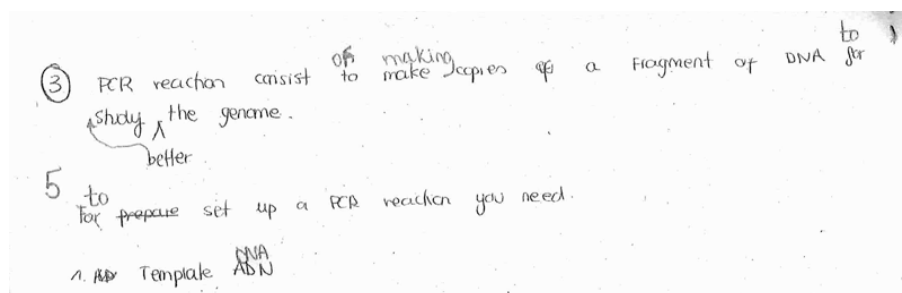 to
of making
③ PCR reaction consist to make copies of a Fragment of DNA for
study the genome.
better
5 to
For prepare set up a PCR reaction you need.
DNA
1. Template ADN